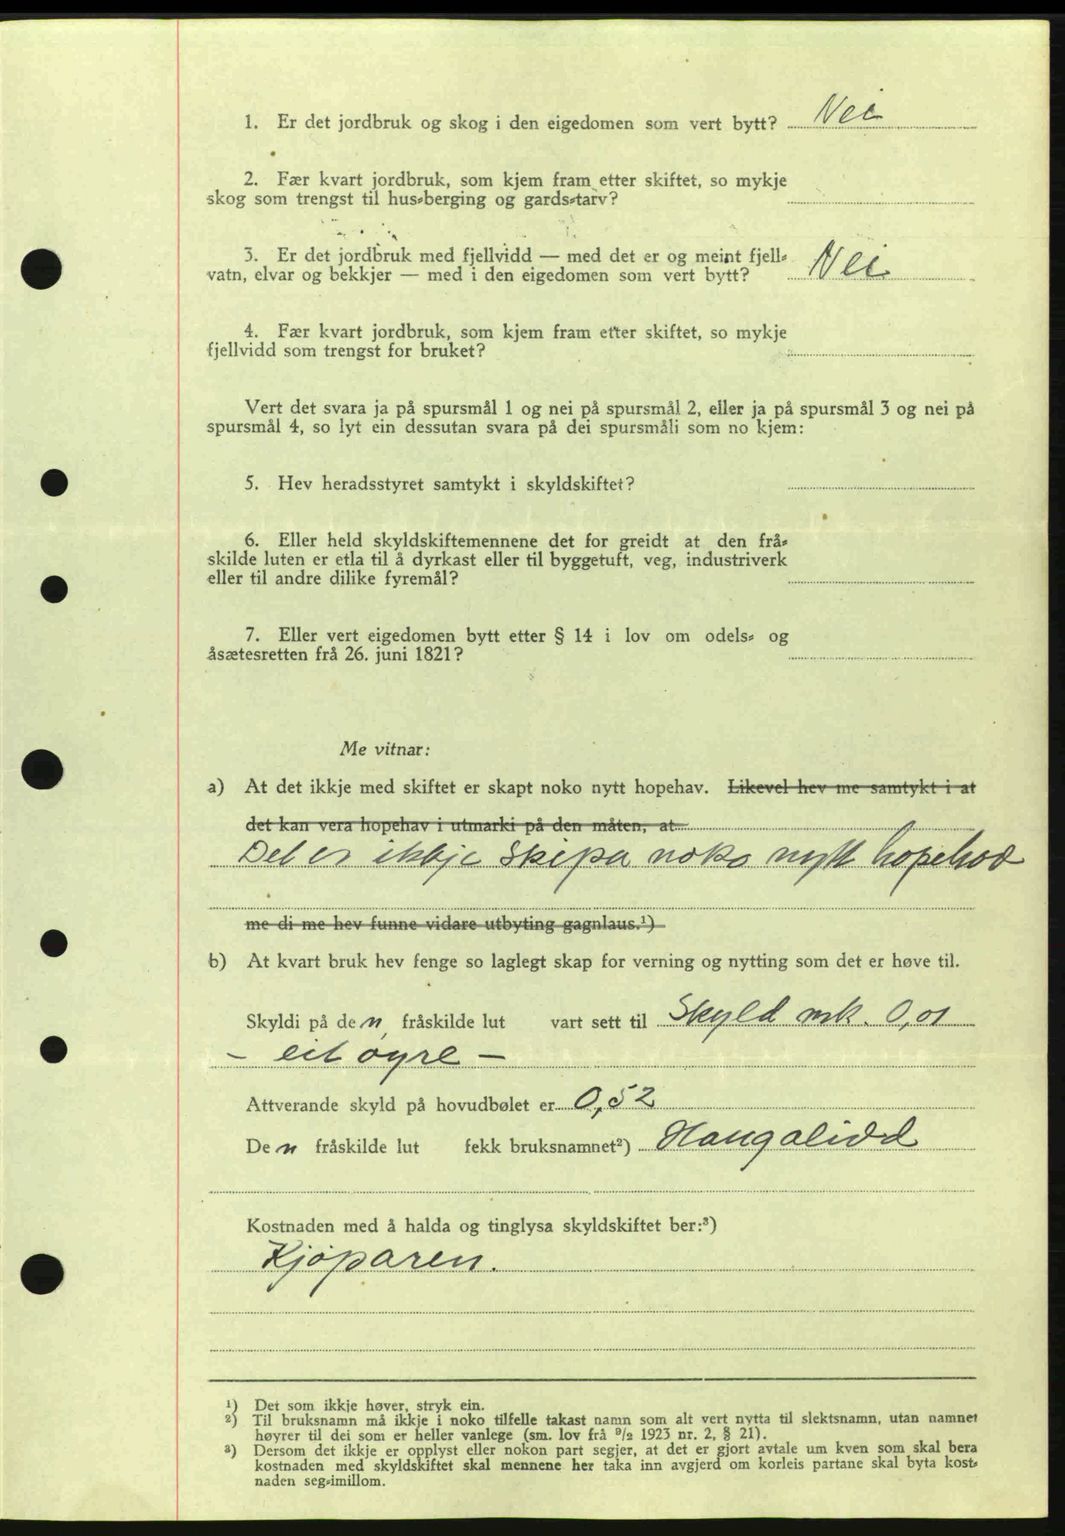 1. Er det jordbruk og skog i den eigedomen som vert bytt? Nei
2. Fær kvart jordbruk, som kjem fram etter skiftet, so mykje
skog som trengst til hus-berging og gards-tarv?
3. Er det jordbruk med fjellvidd — med det er og meint fjell-
vatn, elvar og bekkjer — med i den eigedomen som vert bytt? Nei
4. Fær kvart jordbruk, som kjem fram etter skiftet, so mykje
fjellvidd som trengst for bruket?
Vert det svara ja på spursmål 1 og nei på spursmål 2, eller ja på spursmål 3 og nei på
spursmål 4, so lyt ein dessutan svara på dei spursmåli som no kjem:
5. Hev heradsstyret samtykt i skyldskiftet?
6. Eller held skyldskiftemennene det for greidt at den frå-
skilde luten er etla til å dyrkast eller til byggetuft, veg, industriverk
eller til andre dilike fyremål?
7. Eller vert eigedomen bytt etter § 14 i lov om odels- og
åsætesretten frå 26. juni 1821?
Me vitnar:
a) At det ikkje med skiftet er skapt noko nytt hopehav. Likevel hev me samtykt i at
det kan vera hopehav i utmarki på den måten, at
Det er ikkje skipa noko nytt hopehav
me di me hev funne vidare utbyting gagnlaus.¹)
b) At kvart bruk hev fenge so laglegt skap for verning og nytting som det er høve til.
Skyldi på den fråskilde lut vart sett til Skyld mk. 0,01
- eit øyre -
Attverande skyld på hovudbølet er 0,52
Den fråskilde lut fekk bruksnamnet²) Haugalidd
Kostnaden med å halda og tinglysa skyldskiftet ber:³)
Kjøparen.
¹) Det som ikkje høver, stryk ein.
²) Til bruksnamn må ikkje i noko tilfelle takast namn som alt vert nytta til slektsnamn, utan namnet
høyrer til dei som er heller vanlege (sm. lov frå 9/2 1923 nr. 2, § 21).
³) Dersom det ikkje er opplyst eller nokon part segjer, at det er gjort avtale um kven som skal bera
kostnaden med skyldskiftet skal mennene her taka inn avgjerd om korleis partane skal byta kost-
naden seg-imillom.